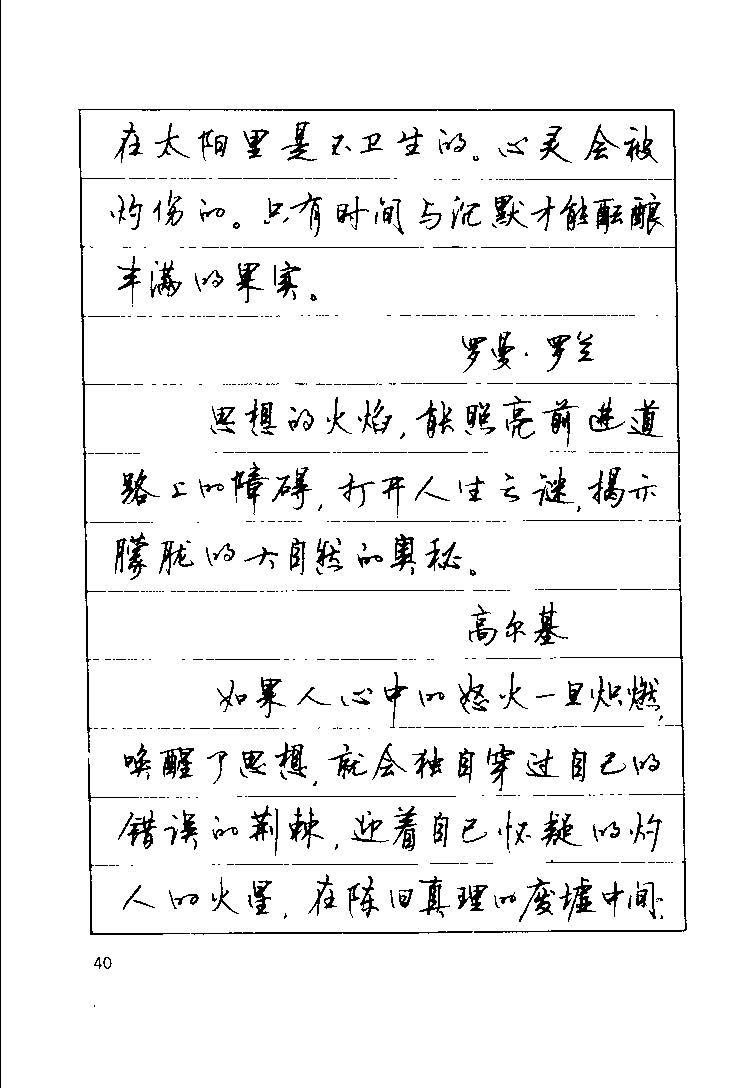 在太阳里是不卫生的。心灵会被
灼伤的。只有时间与沉默才能酝酿
丰满的果实。
罗曼·罗兰
思想的火焰,能照亮前进道
路上的障碍,打开人生之谜,揭示
朦胧的大自然的奥秘。
高尔基
如果人心中的怒火一旦炽燃,
唤醒了思想,就会独自穿过自己的
错误的荆棘,迎着自己怀疑的灼
人的火星,在陈旧真理的废墟中间,
40